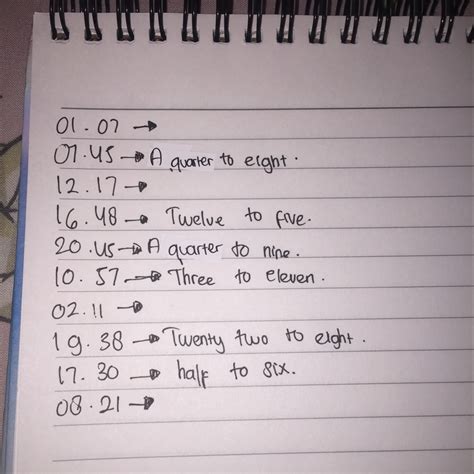 01.07 →
07.45 → A quarter to eight.
12.17 →
16.48 → Twelve to five.
20.45 → A quarter to nine.
10.57 → Three to eleven.
02.11 →
19.38 → Twenty two to eight.
17.30 → half to six.
08.21 →